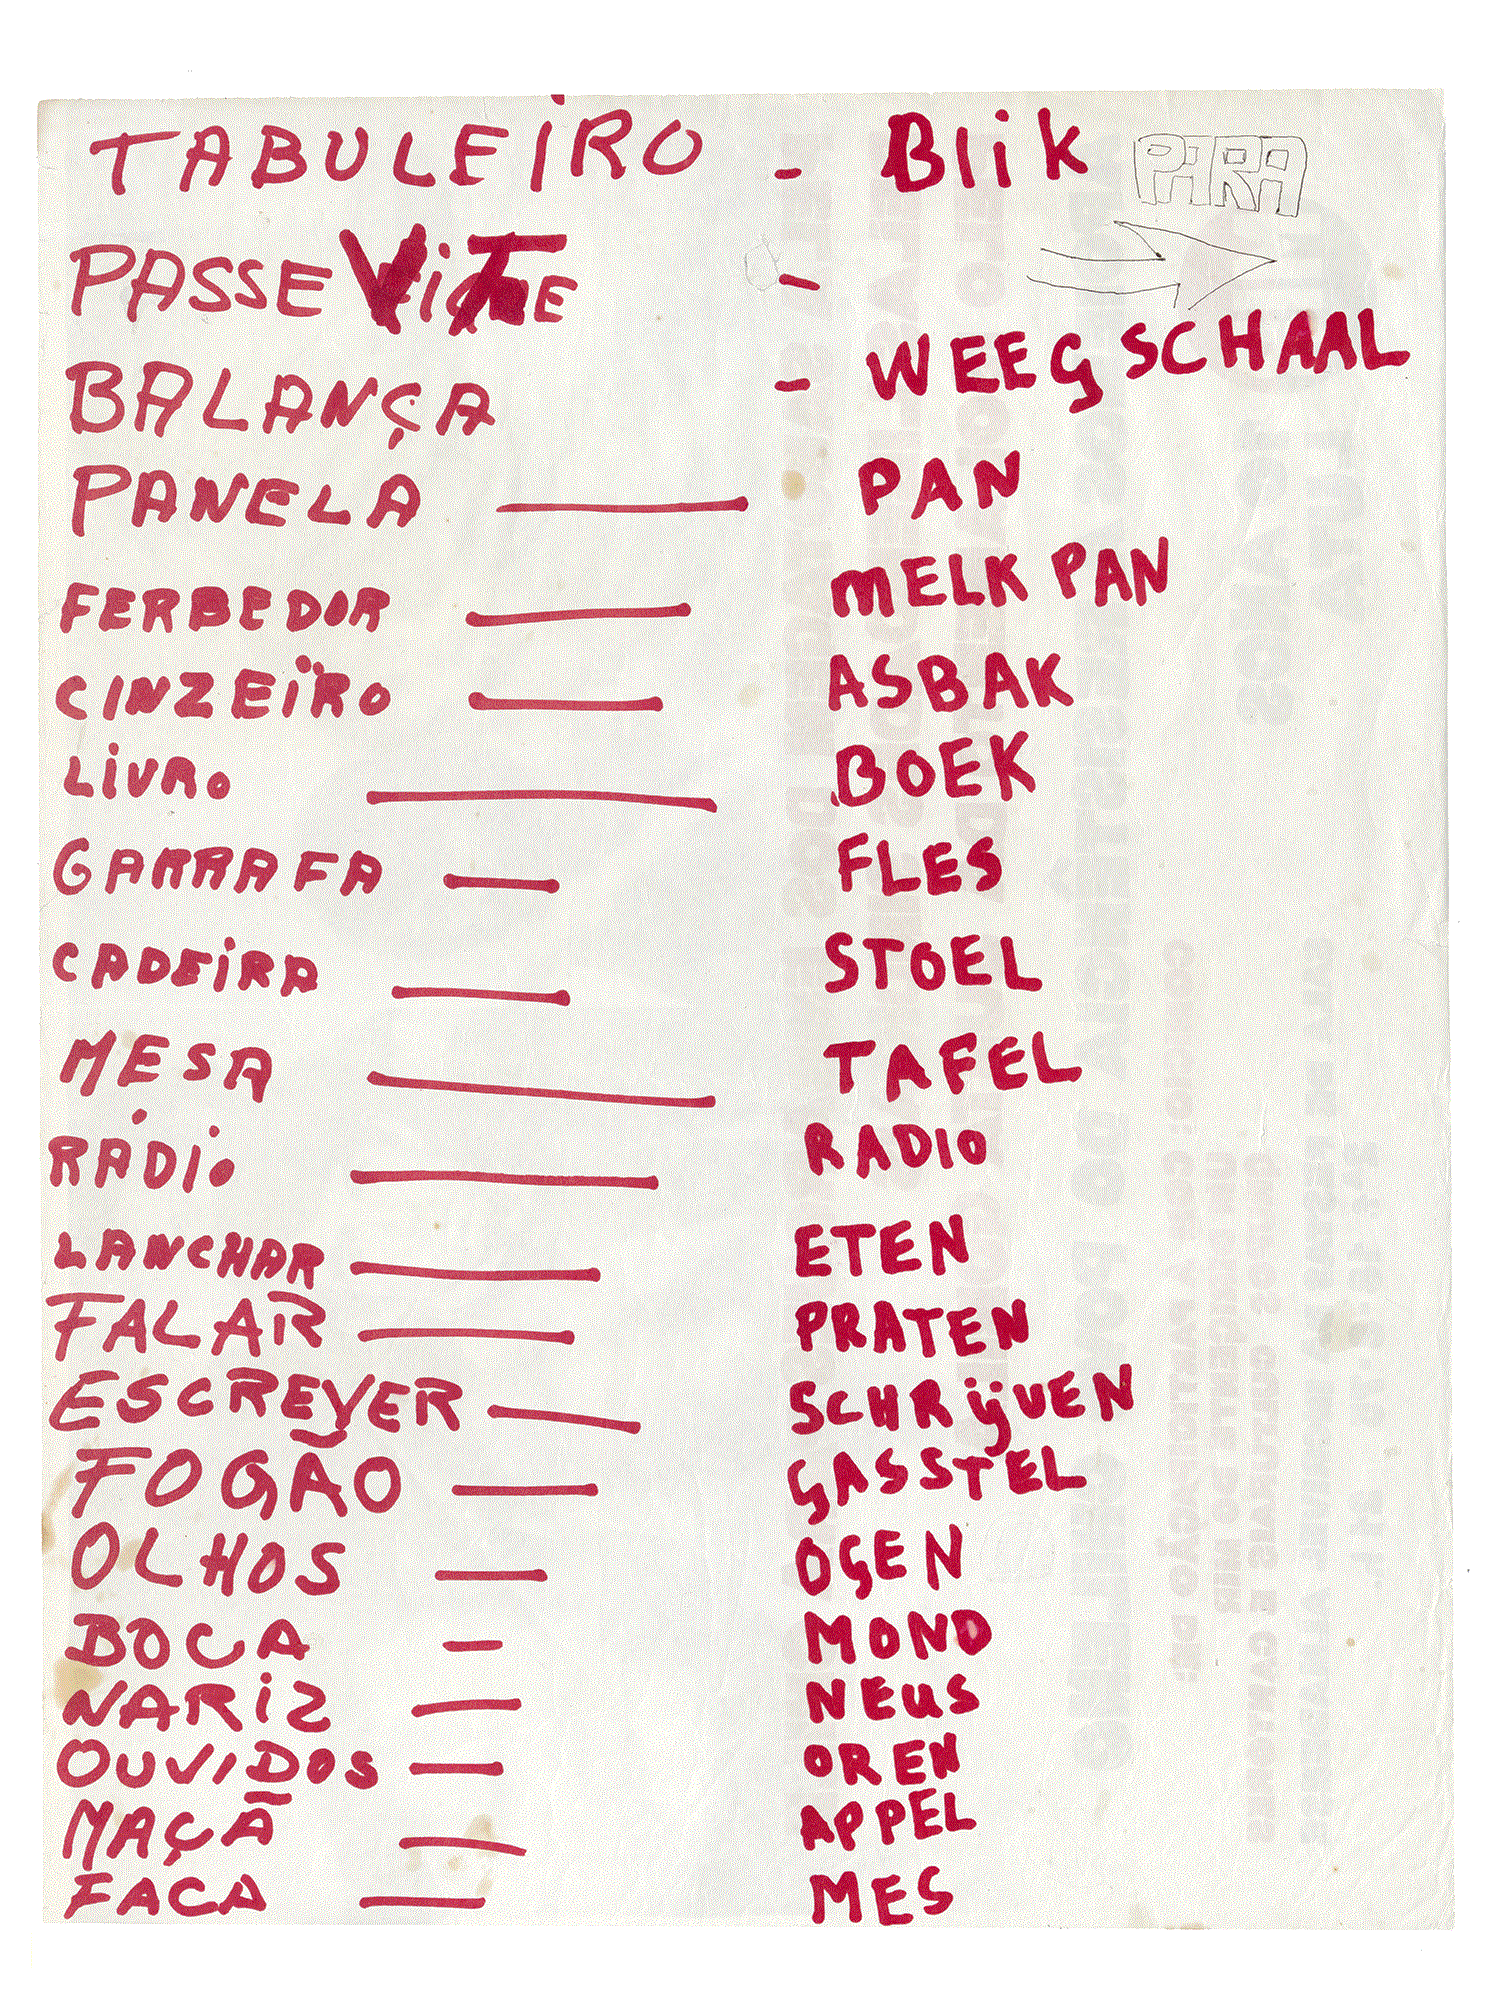 TABULEIRO - Blik PARA
PASSE ViTE -
BALANÇA - WEEGSCHAAL
PANELA — PAN
FERBEDOR — MELK PAN
CINZEÏRO — ASBAK
LiVRO — BOEK
GARRAFA — FLES
CADEiRA — STOEL
MESA — TAFEL
RÁDiO — RADIO
LANCHAR — ETEN
FALAR — PRATEN
ESCREVER — SCHRijVEN
FOGÃO — GASSTEL
OLHOS — OGEN
BOCA — MOND
NARiZ — NEUS
OUVIDOS — OREN
MAÇÃ — APPEL
FACA — MES